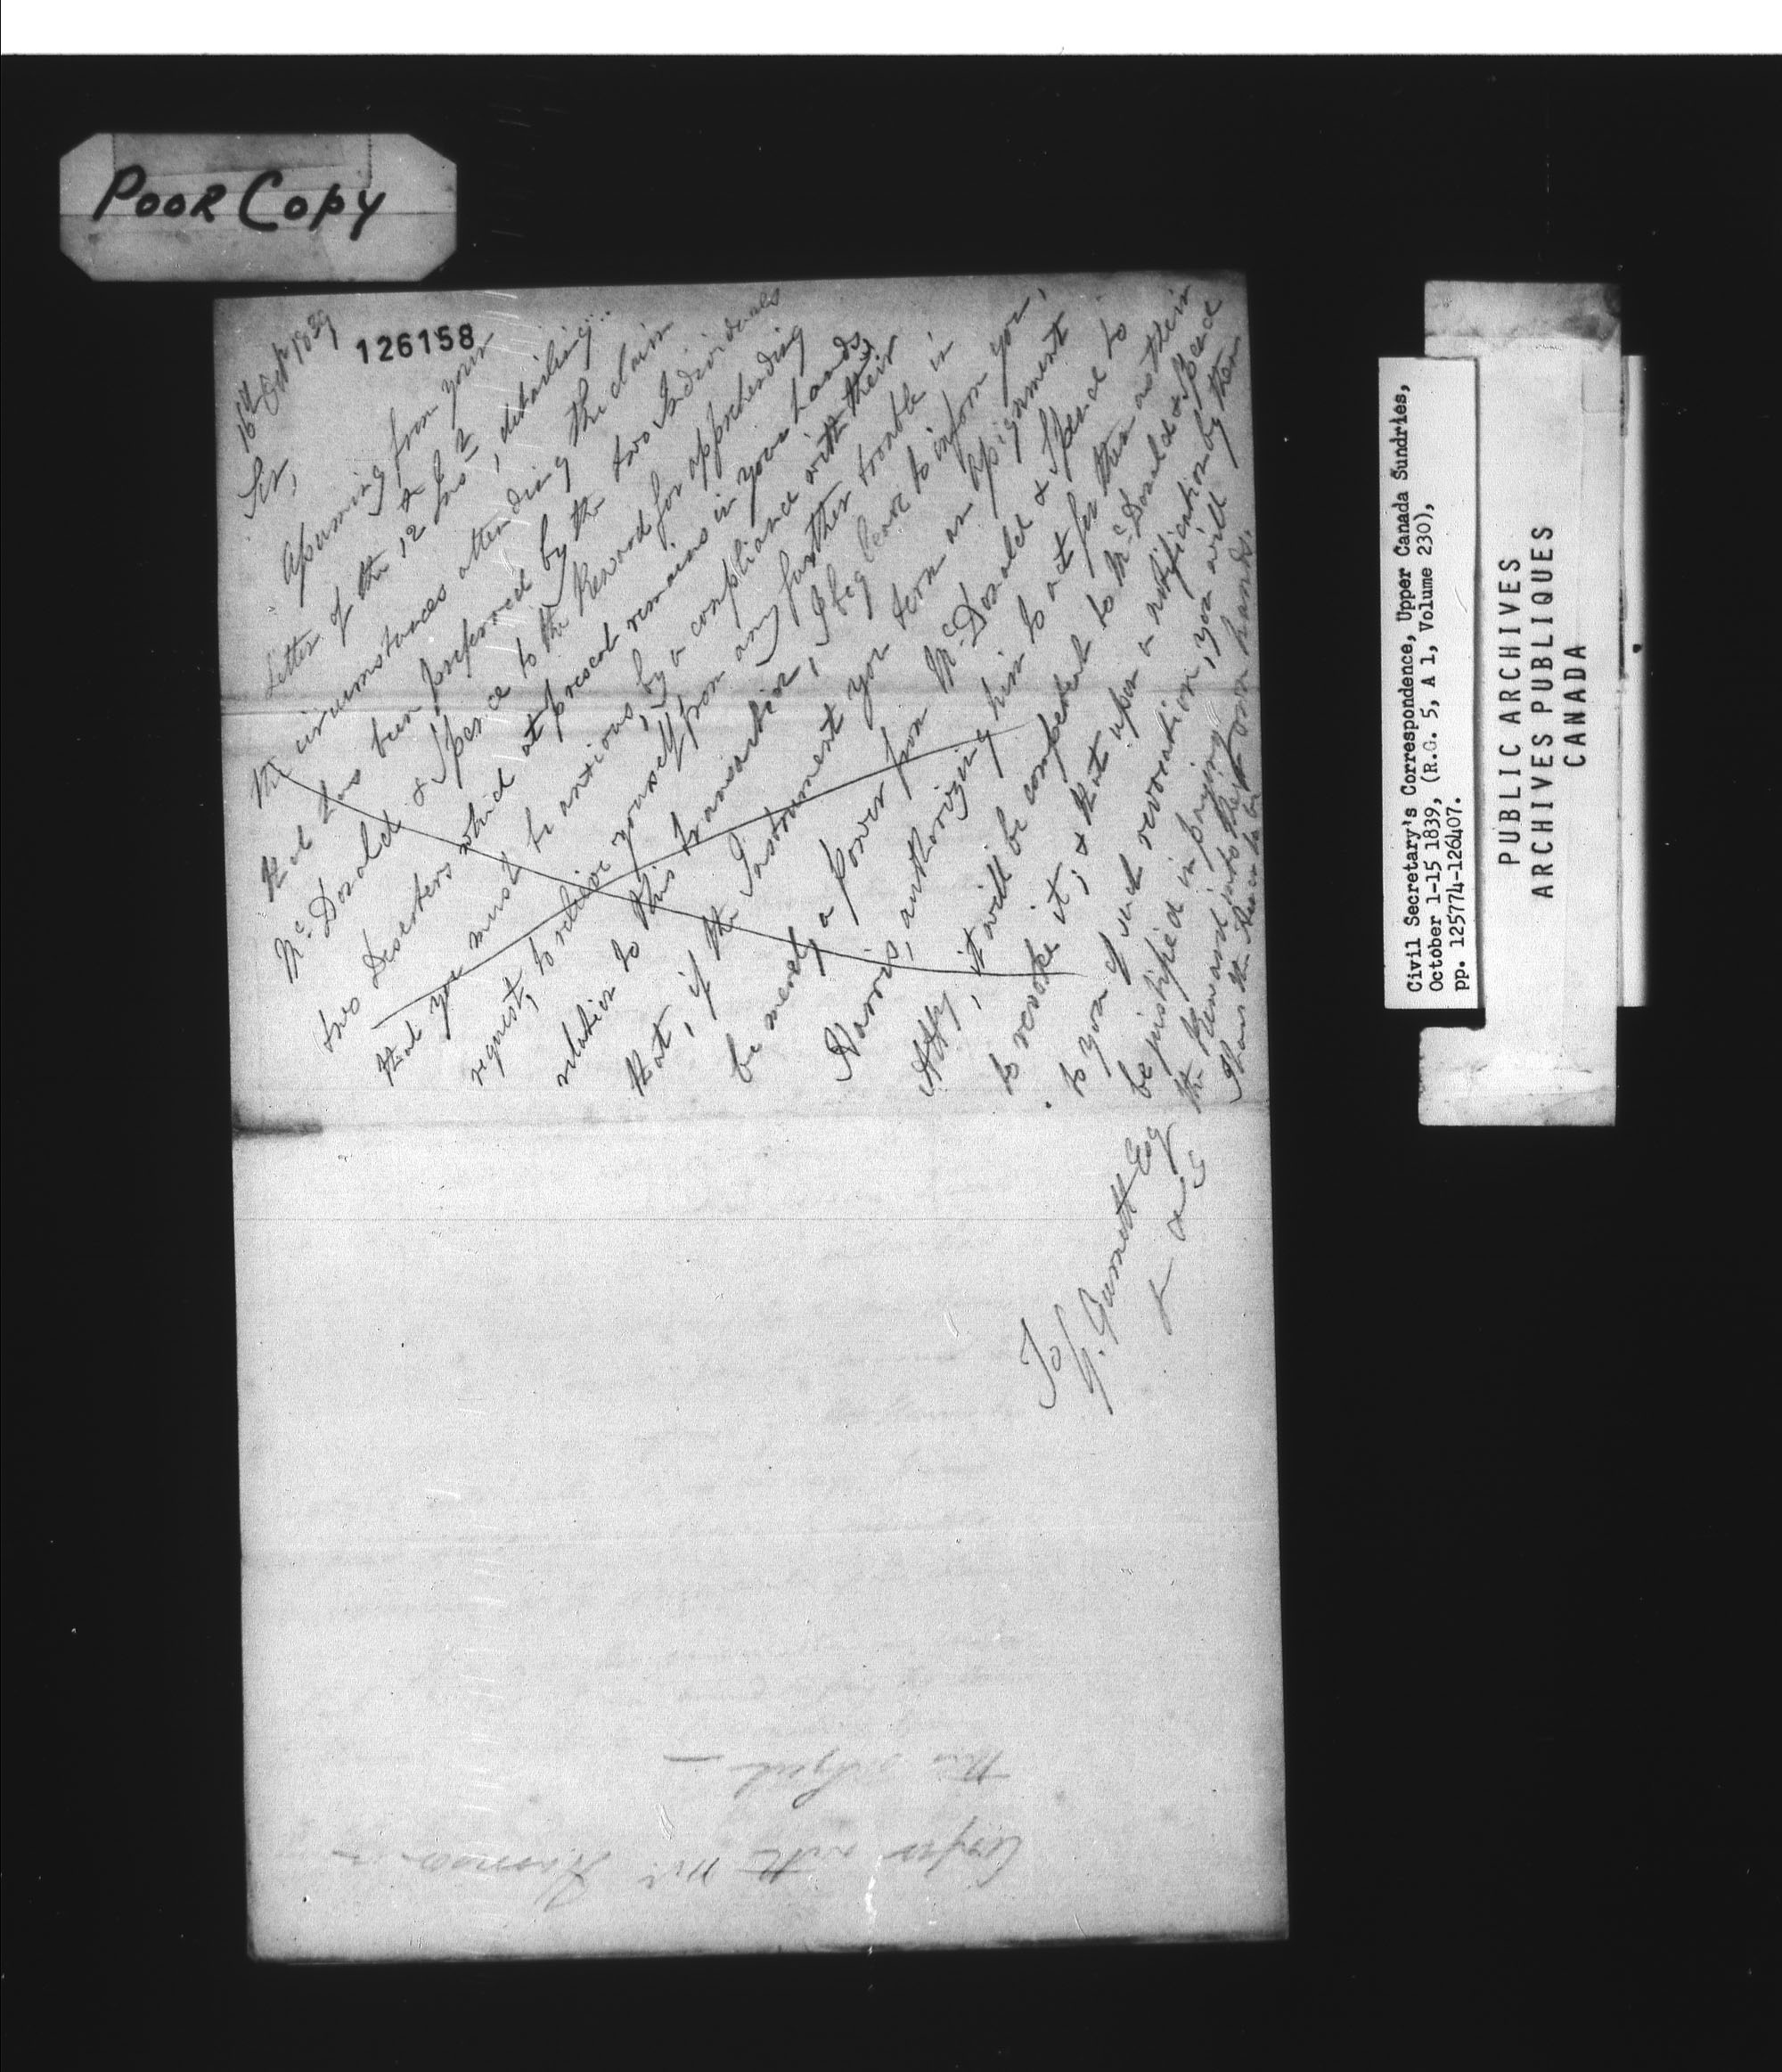 POOR COPY
126158
16th Octr 1839
Sir,
Assuming from your
Letter of the 12 Inst, detailing
the circumstances attending the claim
that has been preferred by the two Individuals
McDonald & Spence to the Reward for apprehending
two Deserters which at present remains in your hands,
that you must be anxious, by a compliance with their
request, to relieve yourself from any further trouble in
relation to this transaction, I beg leave to inform you,
that, if the Instrument you term an assignment
be merely a Power from McDonald & Spence to
Harris, authorizing him to act for them as their
Atty, it will be competent to McDonald & Spence
to revoke it; & that upon a notification by them
to you of such revocation, you will
be justified in paying
the Reward into their own hands.
I have the
To
Garnett Esq
& &c
Confer with Mr
this subject —
Civil Secretary's Correspondence, Upper Canada Sundries,
October 1-15 1839, (R.G. 5, A 1, Volume 230),
pp. 125774-126407.
PUBLIC ARCHIVES
ARCHIVES PUBLIQUES
CANADA